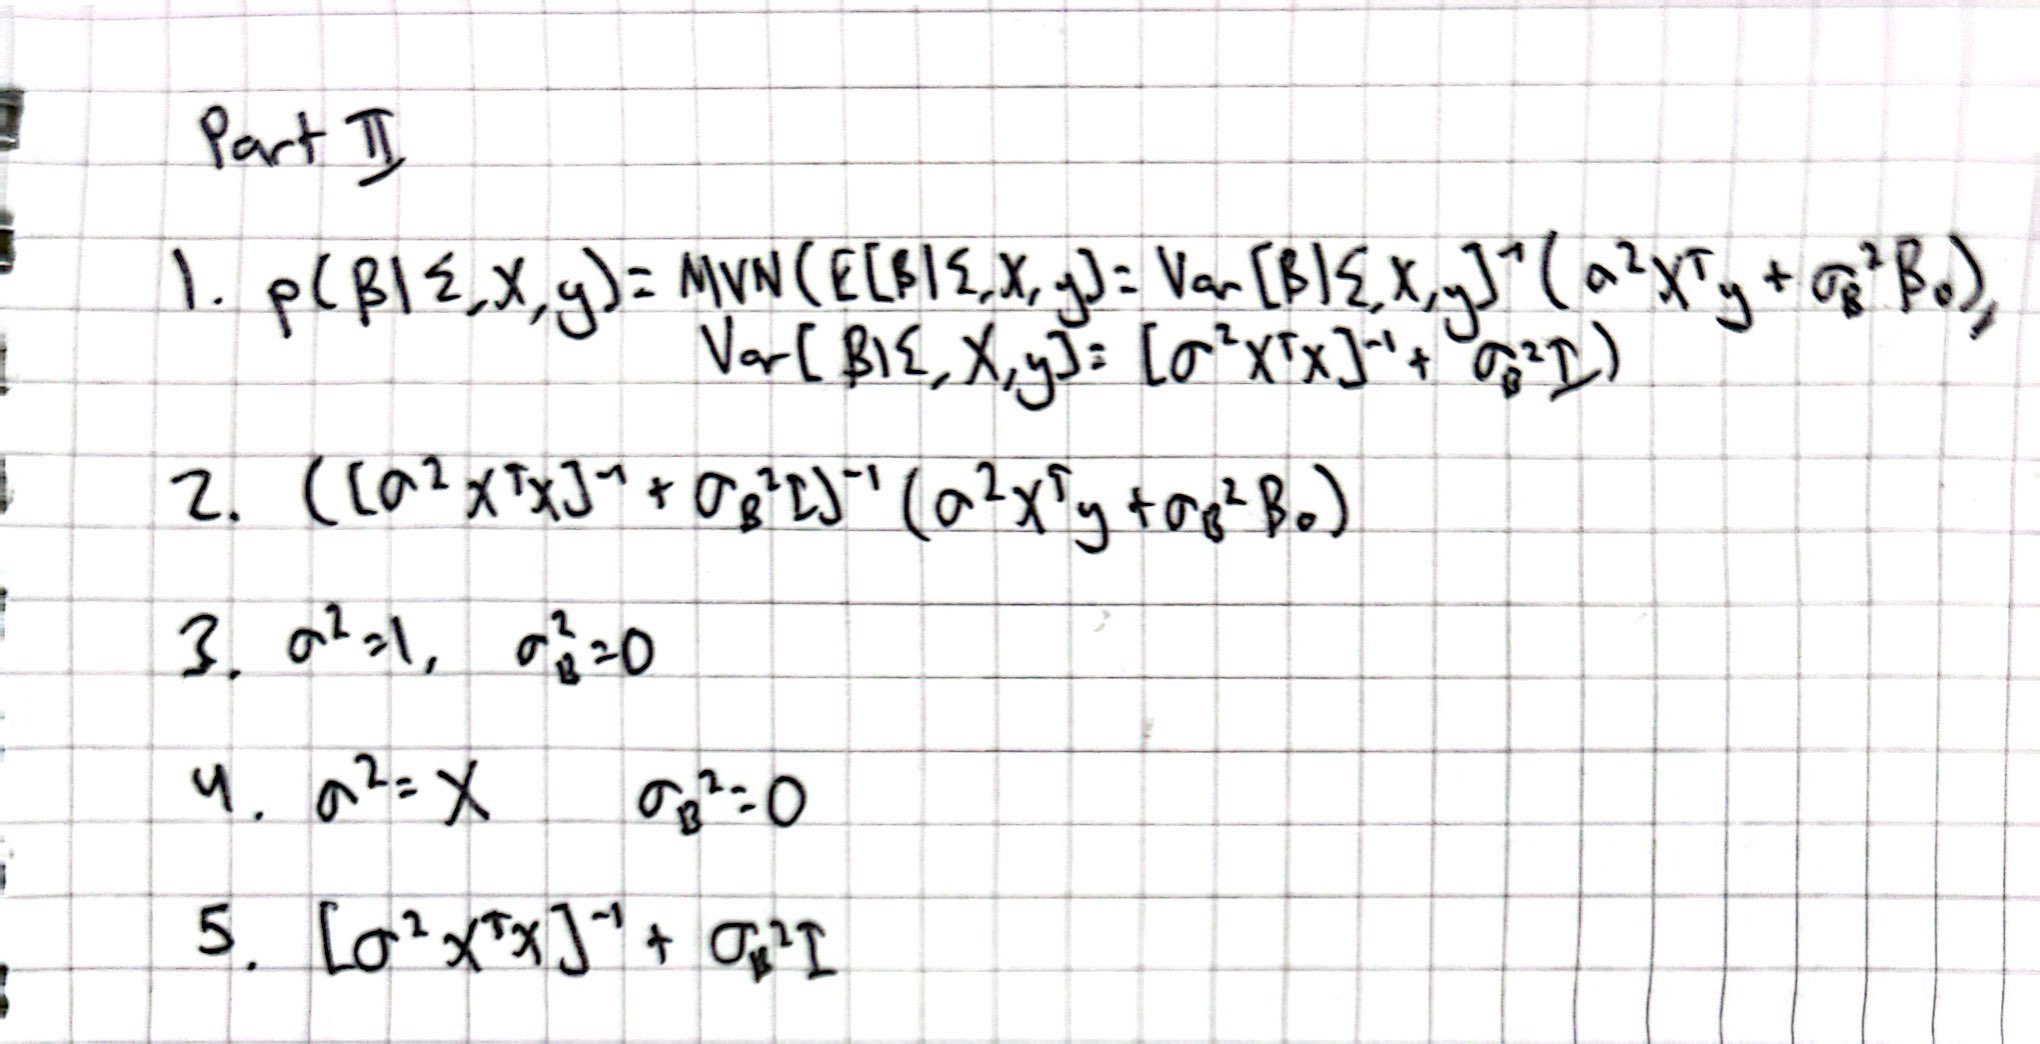 Part II
1. p(β|Σ, X, y) = MVN(E[β|Σ, X, y] = Var[β|Σ, X, y]⁻¹(σ²Xᵀy + σ_β²β₀),
Var[β|Σ, X, y] = [σ²XᵀX]⁻¹ + σ_β²I)
2. ([σ²XᵀX]⁻¹ + σ_β²I)⁻¹(σ²Xᵀy + σ_β²β₀)
3. σ²=1, σ_β²=0
4. σ²= X σ_β²=0
5. [σ²XᵀX]⁻¹ + σ_β²I